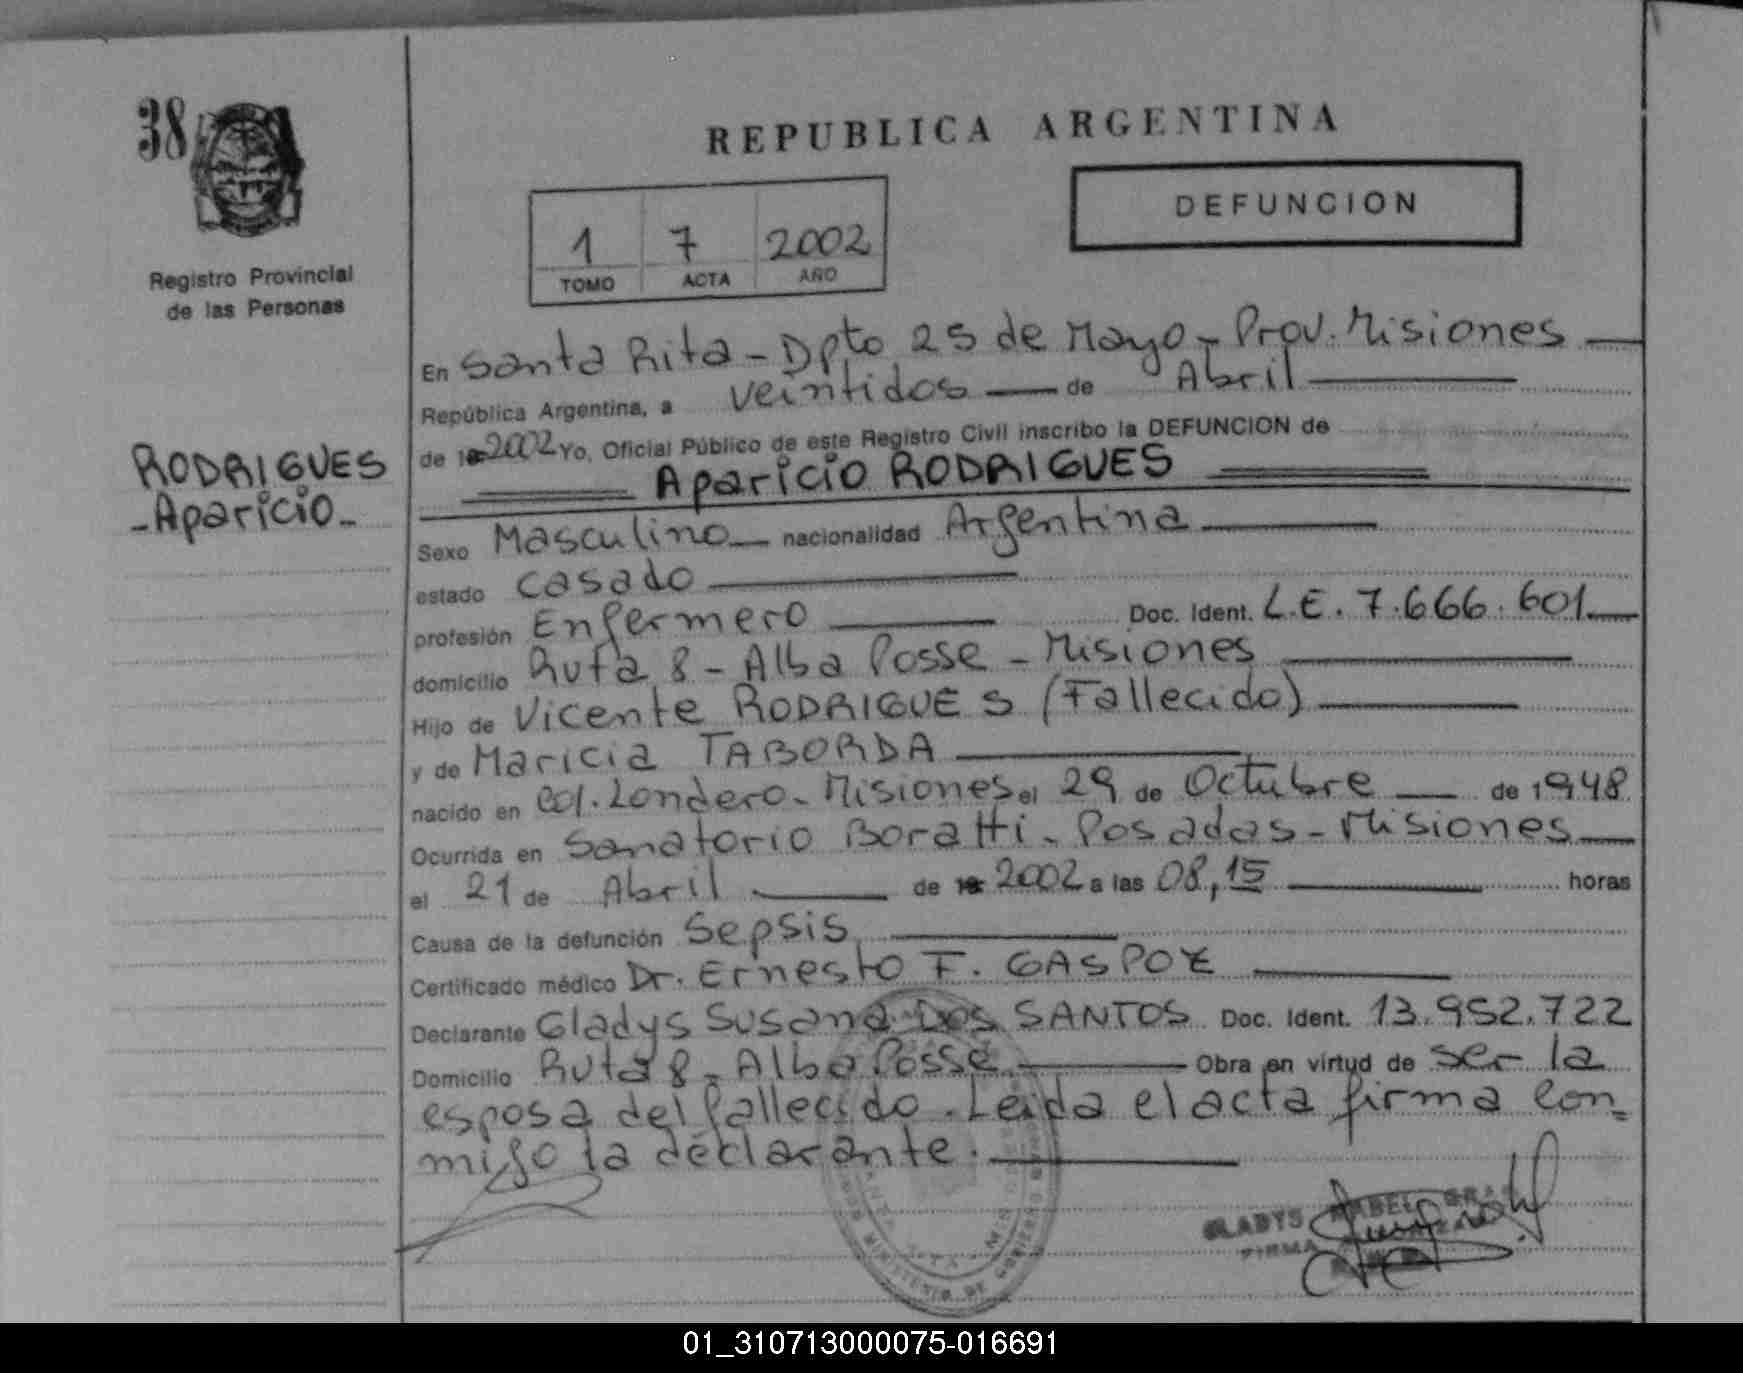 38
Registro Provincial
de las Personas
RODRIGUES
-Aparicio-
REPUBLICA ARGENTINA
DEFUNCION
1 7 2002
TOMO ACTA AÑO
En Santa Rita - Dpto 25 de Mayo - Prov. Misiones
República Argentina, a veintidos de Abril
de 2002 Yo, Oficial Público de este Registro Civil inscribo la DEFUNCION de
Aparicio RODRIGUES
Sexo Masculino nacionalidad Argentina
estado casado
profesión Enfermero Doc. Ident. L.E. 7.666.601
domicilio Ruta 8 - Alba Posse - Misiones
Hijo de Vicente RODRIGUES (Fallecido)
y de Maricia TABORDA
nacido en Col. Londero - Misiones el 29 de Octubre de 1948
Ocurrida en Sanatorio Boratti - Posadas - Misiones
el 21 de Abril de 2002 a las 08,15 horas
Causa de la defunción Sepsis
Certificado médico Dr. Ernesto F.
Declarante Gladys Susana Dos SANTOS Doc. Ident. 13.952.722
Domicilio Ruta 8 - Alba Posse Obra en virtud de ser la
esposa del fallecido. Leida el acta firma con=
migo la declarante.
GLADYS
FIRMA
MINISTERIO DE GOBIERNO
01_310713000075-016691